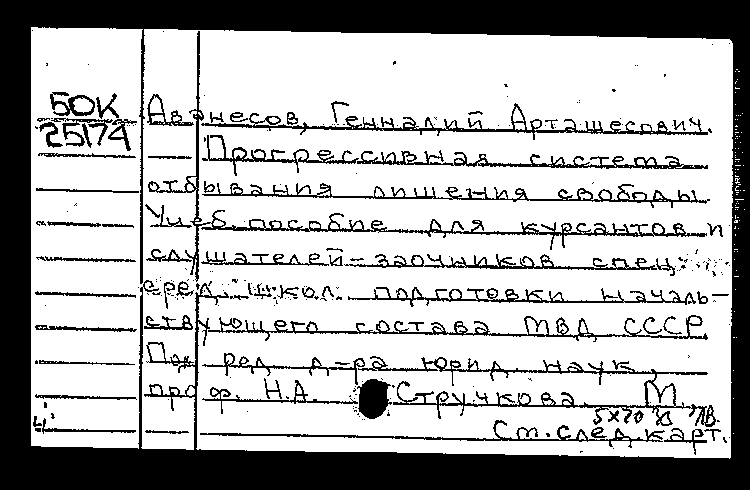 БОК
25174
Аванесов, Геннадий Арташесович.
Прогрессивная система
отбывания лишения свободы.
Учеб. пособие для курсантов и
слушателей-заочников спец.
сред. школ подготовки началь-
ствующего состава МВД СССР.
Под ред. д-ра юрид. наук,
проф. Н.А. Стручкова. М.,
См.след.карт.